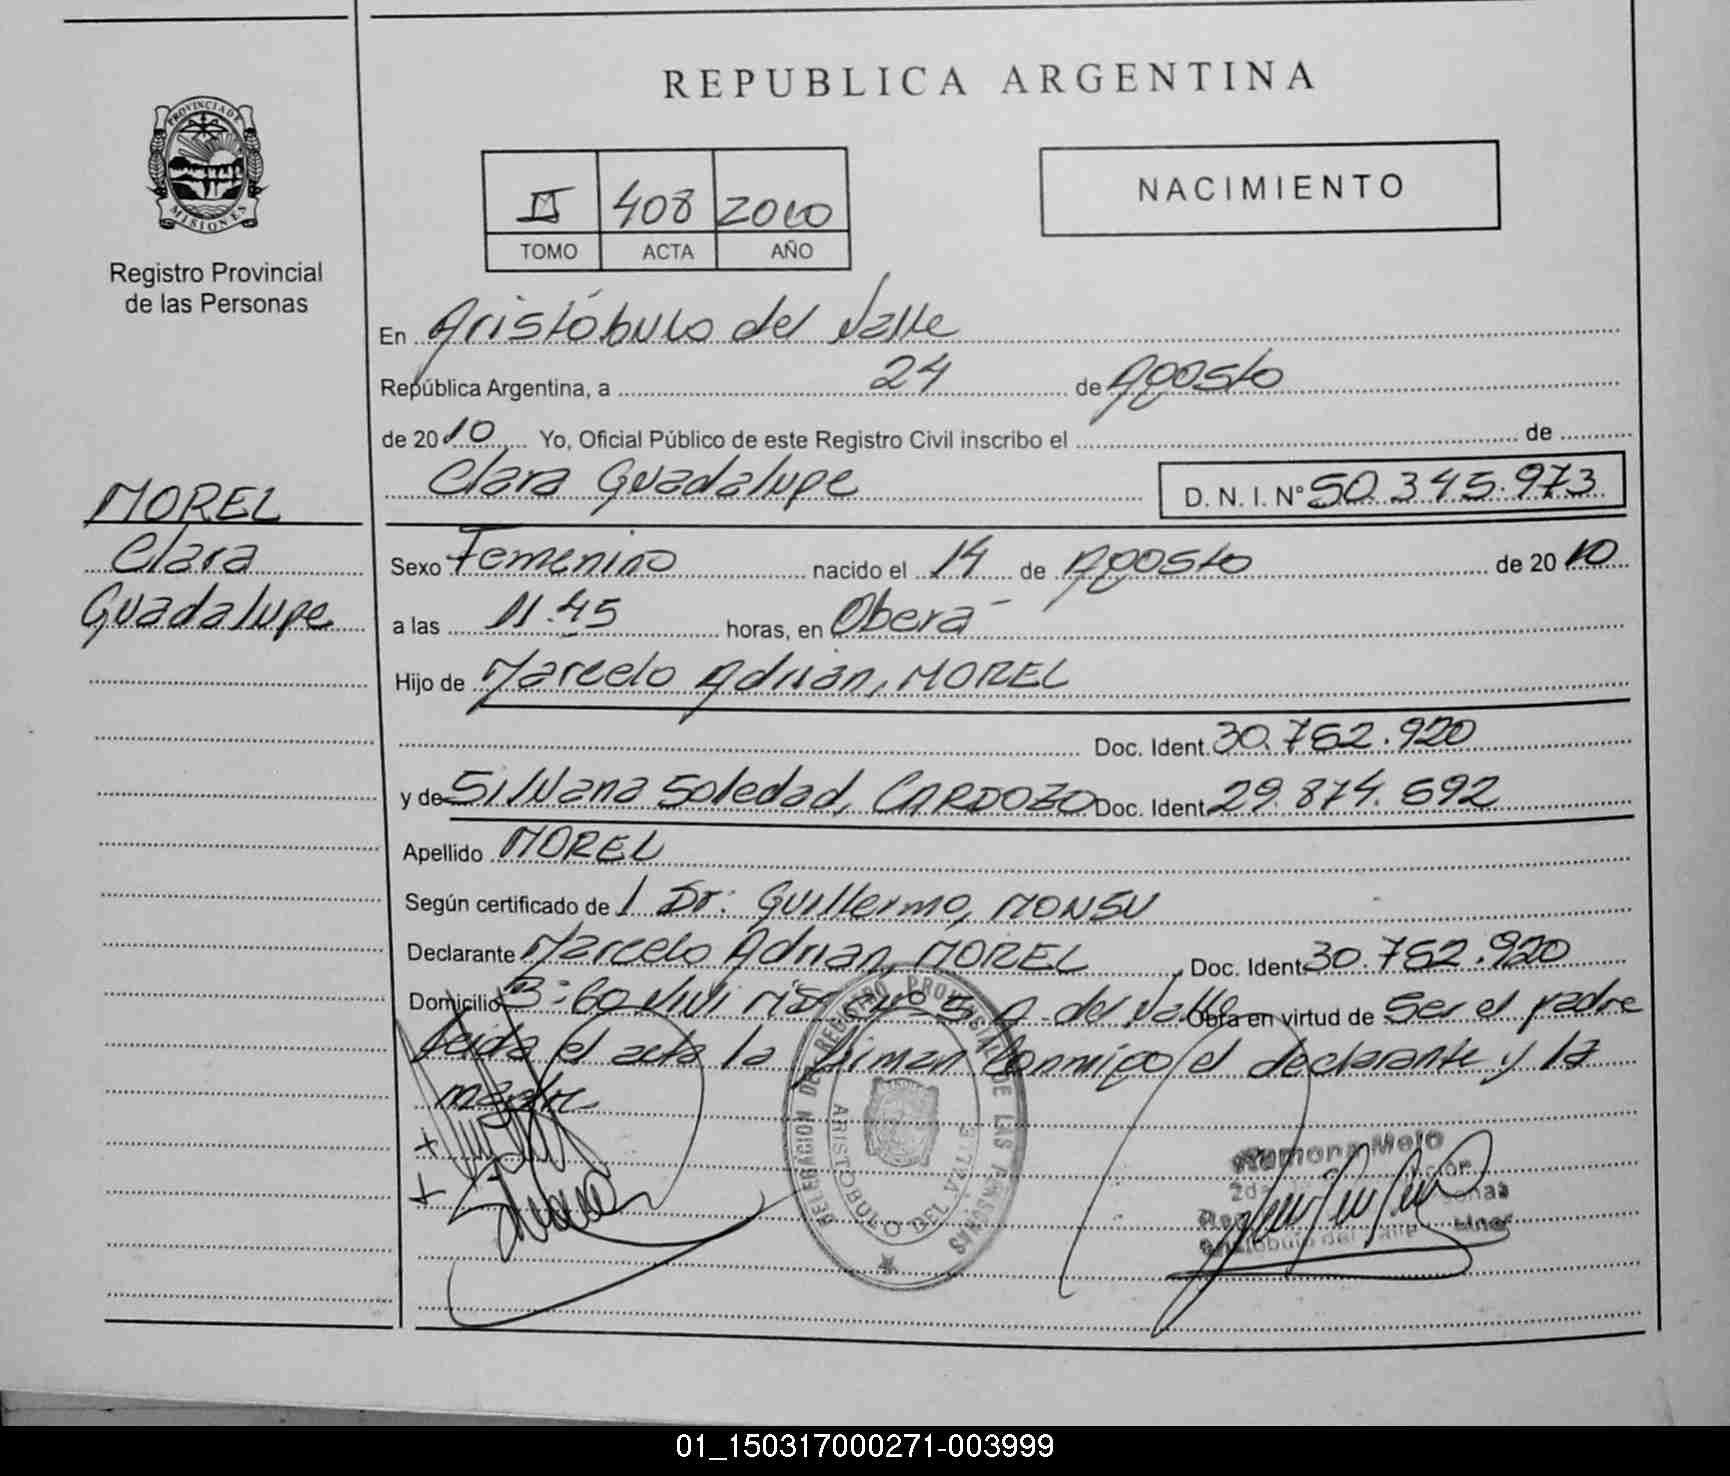 REPUBLICA ARGENTINA
PROVINCIA DE
MISIONES
Registro Provincial
de las Personas
II 408 2010
TOMO ACTA AÑO
NACIMIENTO
En Aristóbulo del Valle
República Argentina, a 24 de Agosto
de 2010 Yo, Oficial Público de este Registro Civil inscribo el de
Clara Guadalupe D. N. I. N° 50.345.973
MOREL
Clara
Guadalupe
Sexo Femenino nacido el 14 de Agosto de 2010
a las 11.45 horas, en Oberá
Hijo de Marcelo Adrian, MOREL
Doc. Ident. 30.762.920
y de Silvana Soledad, CARDOZO Doc. Ident. 29.874.692
Apellido MOREL
Según certificado de / Dr: Guillermo, MONSU
Declarante Marcelo Adrian, MOREL Doc. Ident. 30.762.920
Domicilio B: 60 Vivi Nº 5 A. del Valle Obra en virtud de Ser el padre
Leida el acta la firman conmigo el declarante y la
madre
DELEGACION DEL REGISTRO PROVINCIAL DE LAS PERSONAS
ARISTOBULO DEL VALLE
Ramona Melo
Aristobulo del Valle
01_150317000271-003999